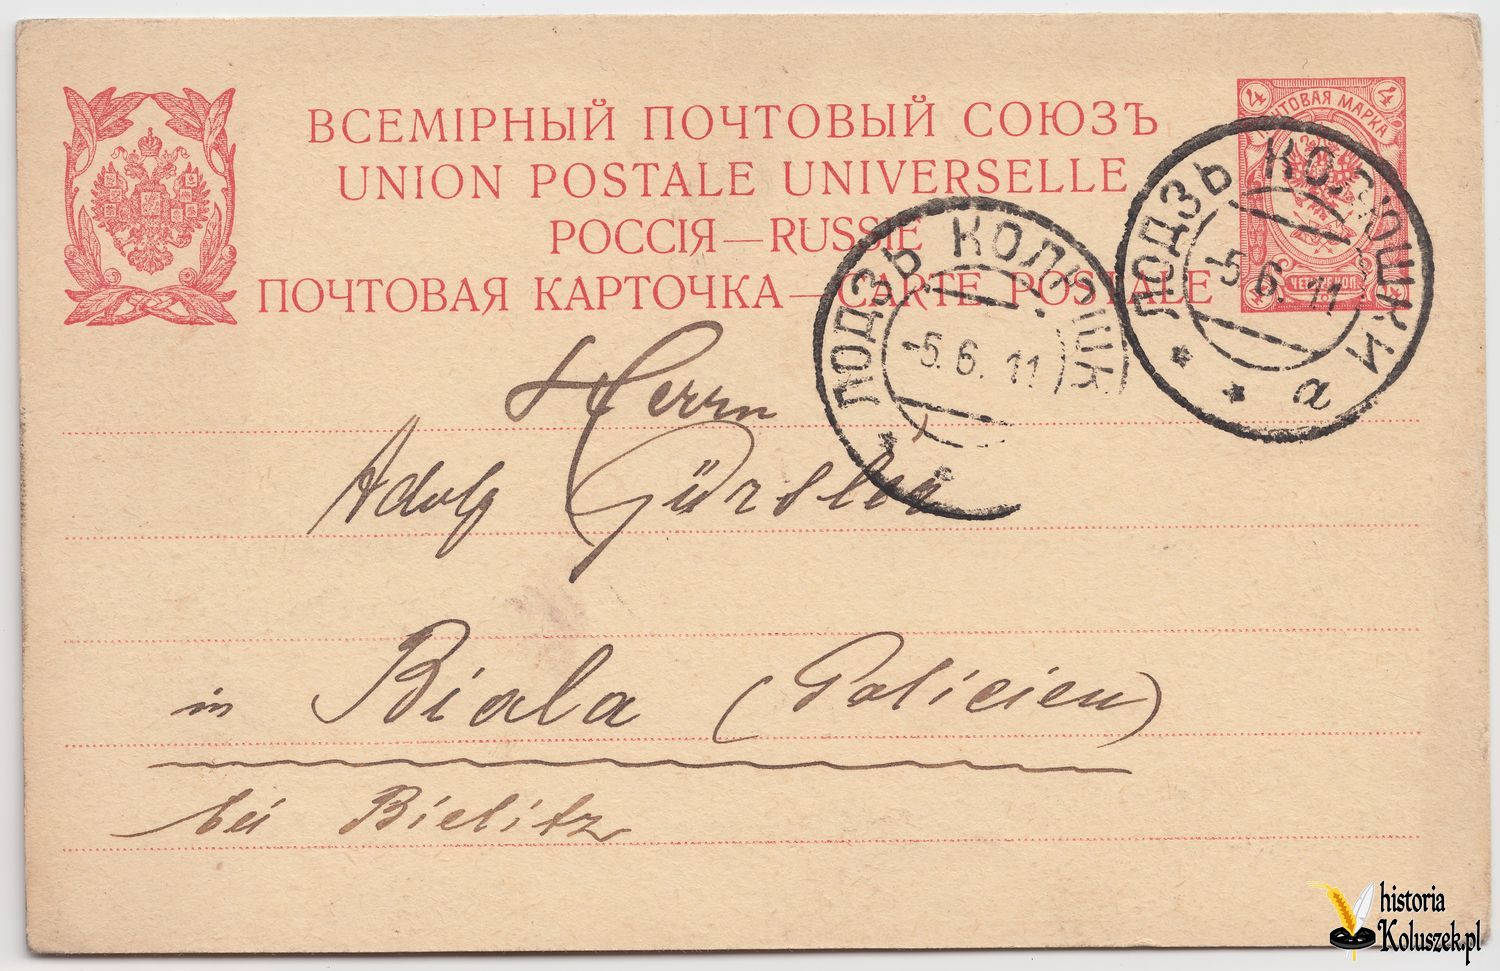 ВСЕМІРНЫЙ ПОЧТОВЫЙ СОЮЗЪ
UNION POSTALE UNIVERSELLE
РОССІЯ—RUSSIE
ПОЧТОВАЯ КАРТОЧКА—CARTE POSTALE
4 4
МАРКА
ЛОДЗЬ КОЛЮШКИ
-5.6.11
а
ЛОДЗЬ КОЛЮШК
-5.6.11
Herrn
Adolf
in Biala (Galicien)
bei Bielitz
historia
Koluszek.pl